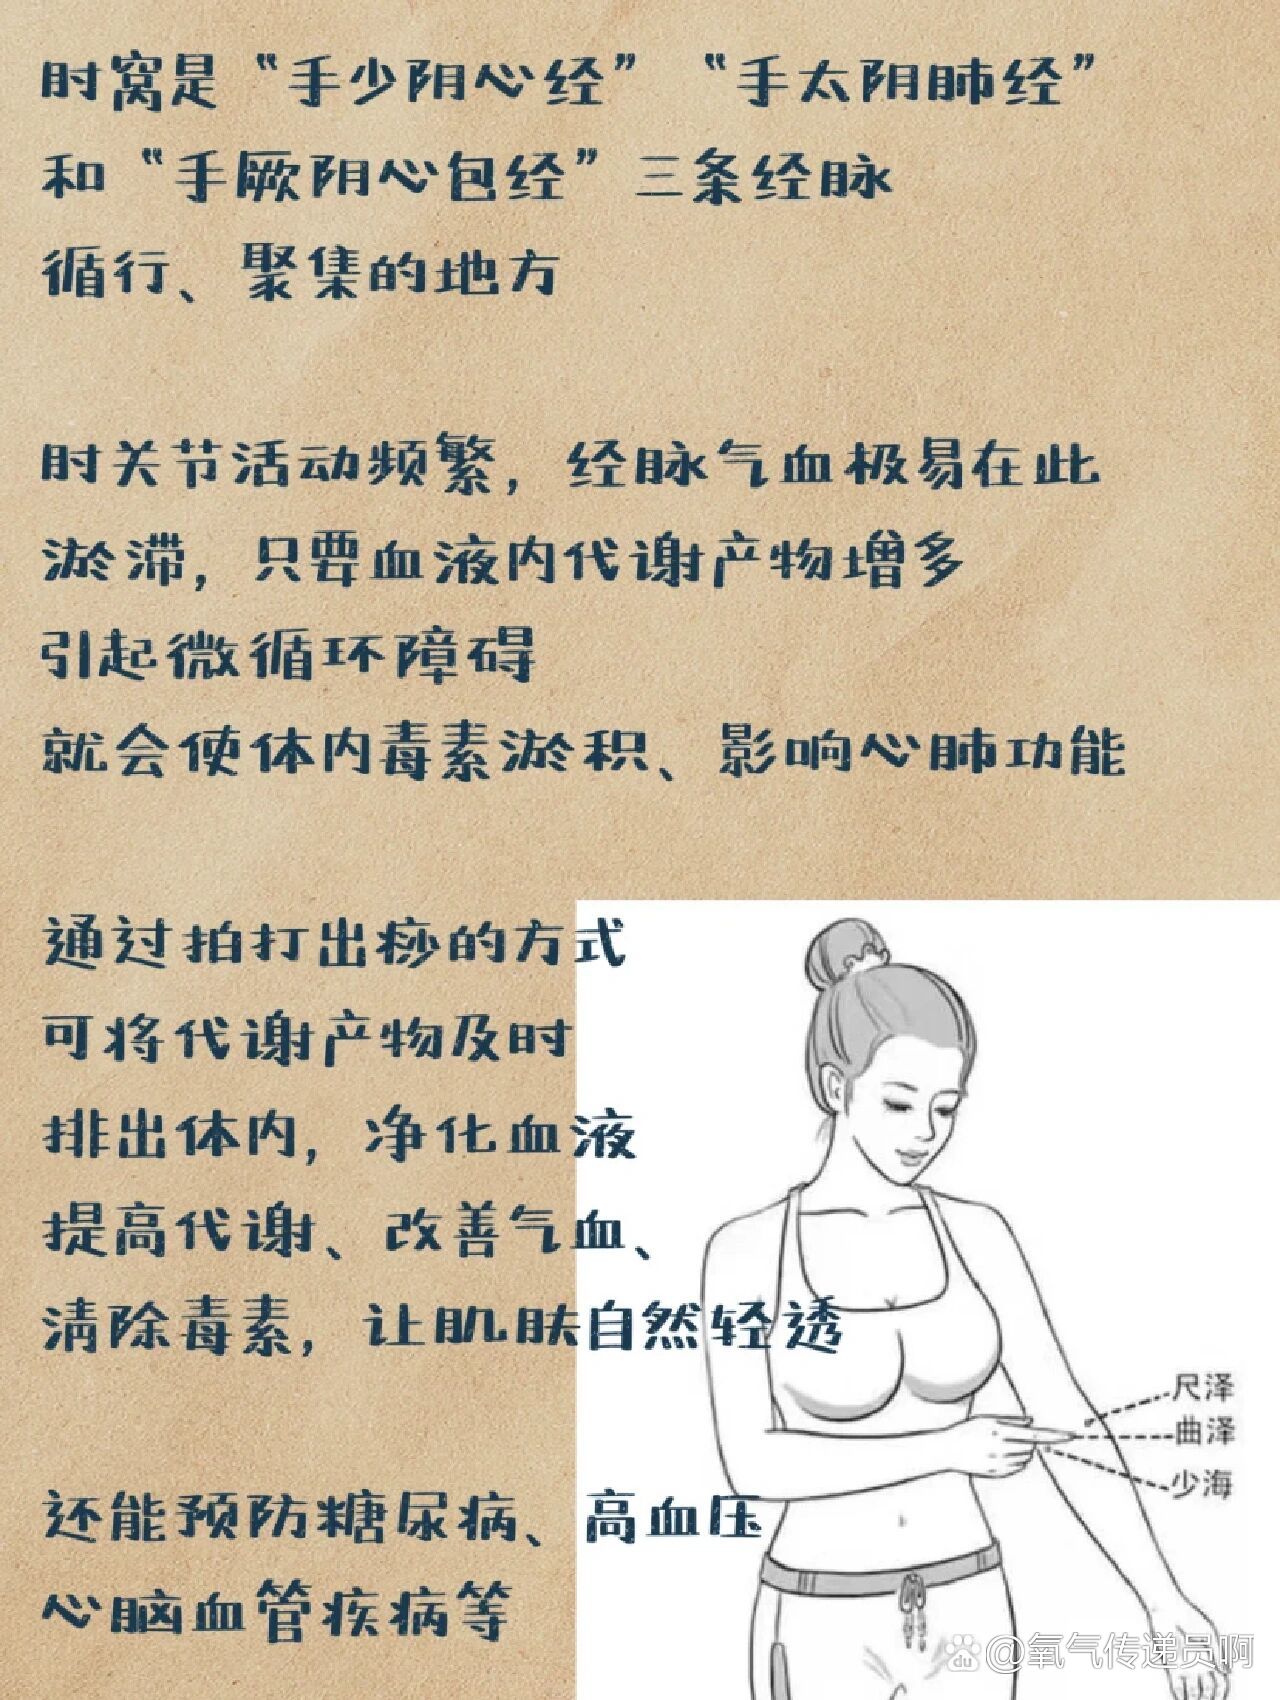 肘窝是“手少阴心经”“手太阴肺经”
和“手厥阴心包经”三条经脉
循行、聚集的地方
肘关节活动频繁，经脉气血极易在此
淤滞，只要血液内代谢产物增多
引起微循环障碍
就会使体内毒素淤积、影响心肺功能
通过拍打出痧的方式
可将代谢产物及时
排出体内，净化血液
提高代谢、改善气血、
清除毒素，让肌肤自然轻透
尺泽
曲泽
少海
还能预防糖尿病、高血压
心脑血管疾病等
du @氧气传递员啊